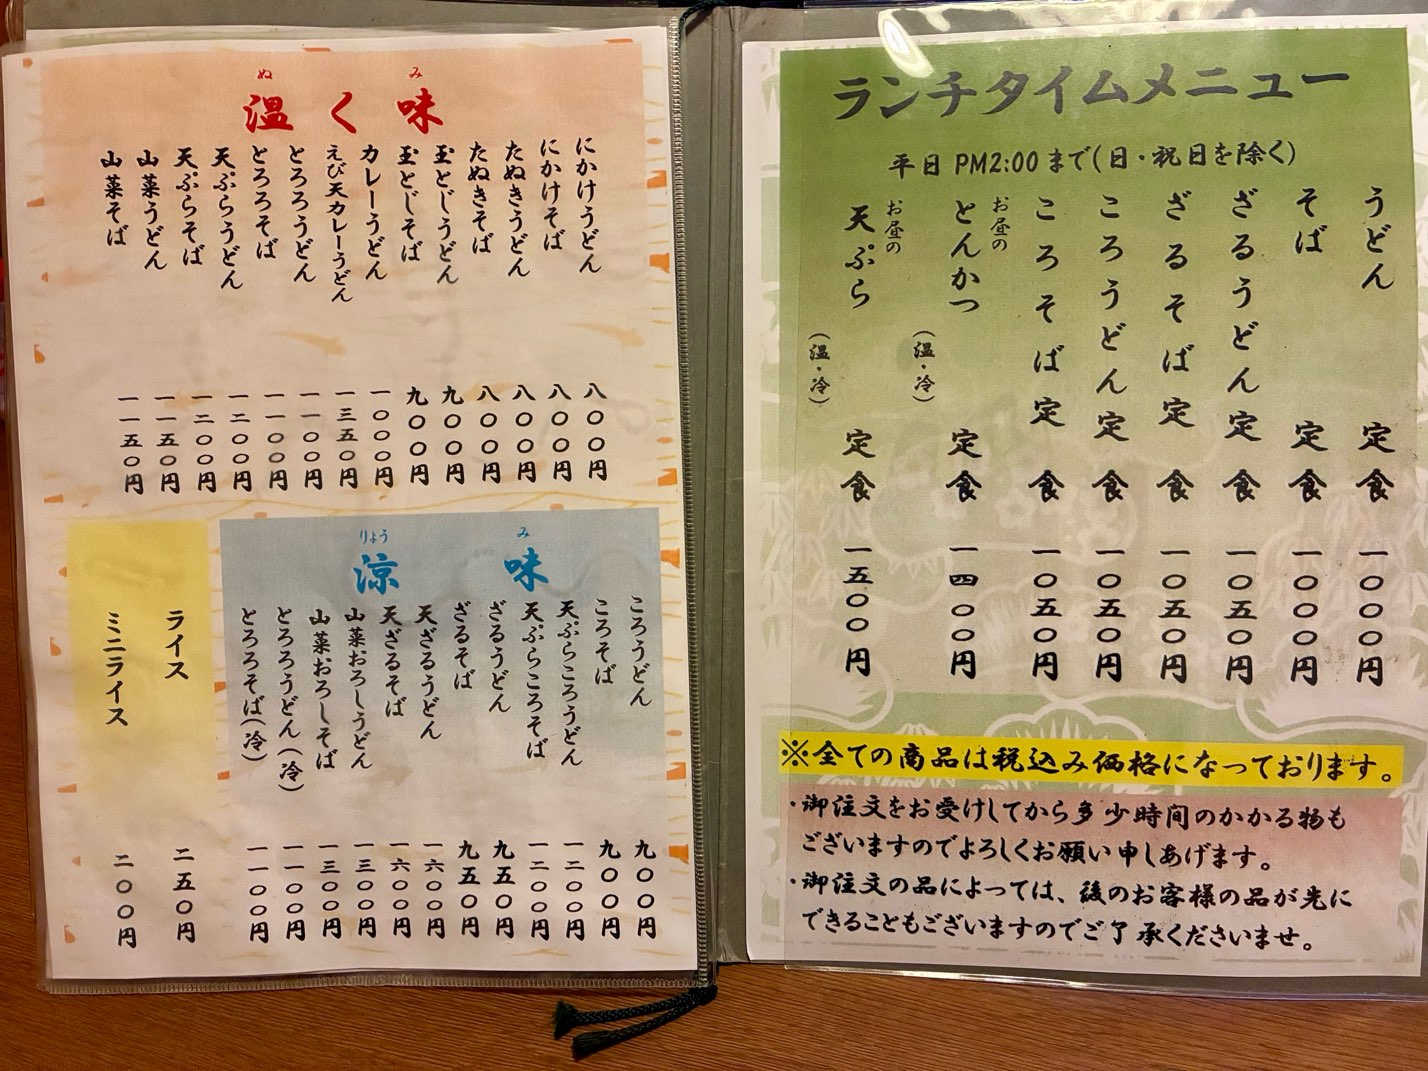 ランチタイムメニュー
平日 PM2:00まで(日・祝日を除く)
うどん 定食 一〇〇〇円
そば 定食 一〇〇〇円
ざるうどん 定食 一〇五〇円
ざるそば 定食 一〇五〇円
ころうどん 定食 一〇五〇円
ころそば 定食 一〇五〇円
お昼の とんかつ (温・冷) 定食 一四〇〇円
お昼の 天ぷら (温・冷) 定食 一五〇〇円
※全ての商品は税込み価格になっております。
・御注文をお受けしてから多少時間のかかる物も
ございますのでよろしくお願い申しあげます。
・御注文の品によっては、後のお客様の品が先に
できることもございますのでご了承くださいませ。
ぬ み
温く味
にかけうどん 八〇〇円
にかけそば 八〇〇円
たぬきうどん 八〇〇円
たぬきそば 八〇〇円
玉とじうどん 九〇〇円
玉とじそば 九〇〇円
カレーうどん 一〇〇〇円
えび天カレーうどん 一三五〇円
とろろうどん 一一〇〇円
とろろそば 一一〇〇円
天ぷらうどん 一二〇〇円
天ぷらそば 一二〇〇円
山菜うどん 一一五〇円
山菜そば 一一五〇円
りょう み
涼味
ころうどん 九〇〇円
ころそば 九〇〇円
天ぷらころうどん 一二〇〇円
天ぷらころそば 一二〇〇円
ざるうどん 九五〇円
ざるそば 九五〇円
天ざるうどん 一六〇〇円
天ざるそば 一六〇〇円
山菜おろしうどん 一三〇〇円
山菜おろしそば 一三〇〇円
とろろうどん(冷) 一一〇〇円
とろろそば(冷) 一一〇〇円
ライス 二五〇円
ミニライス 二〇〇円